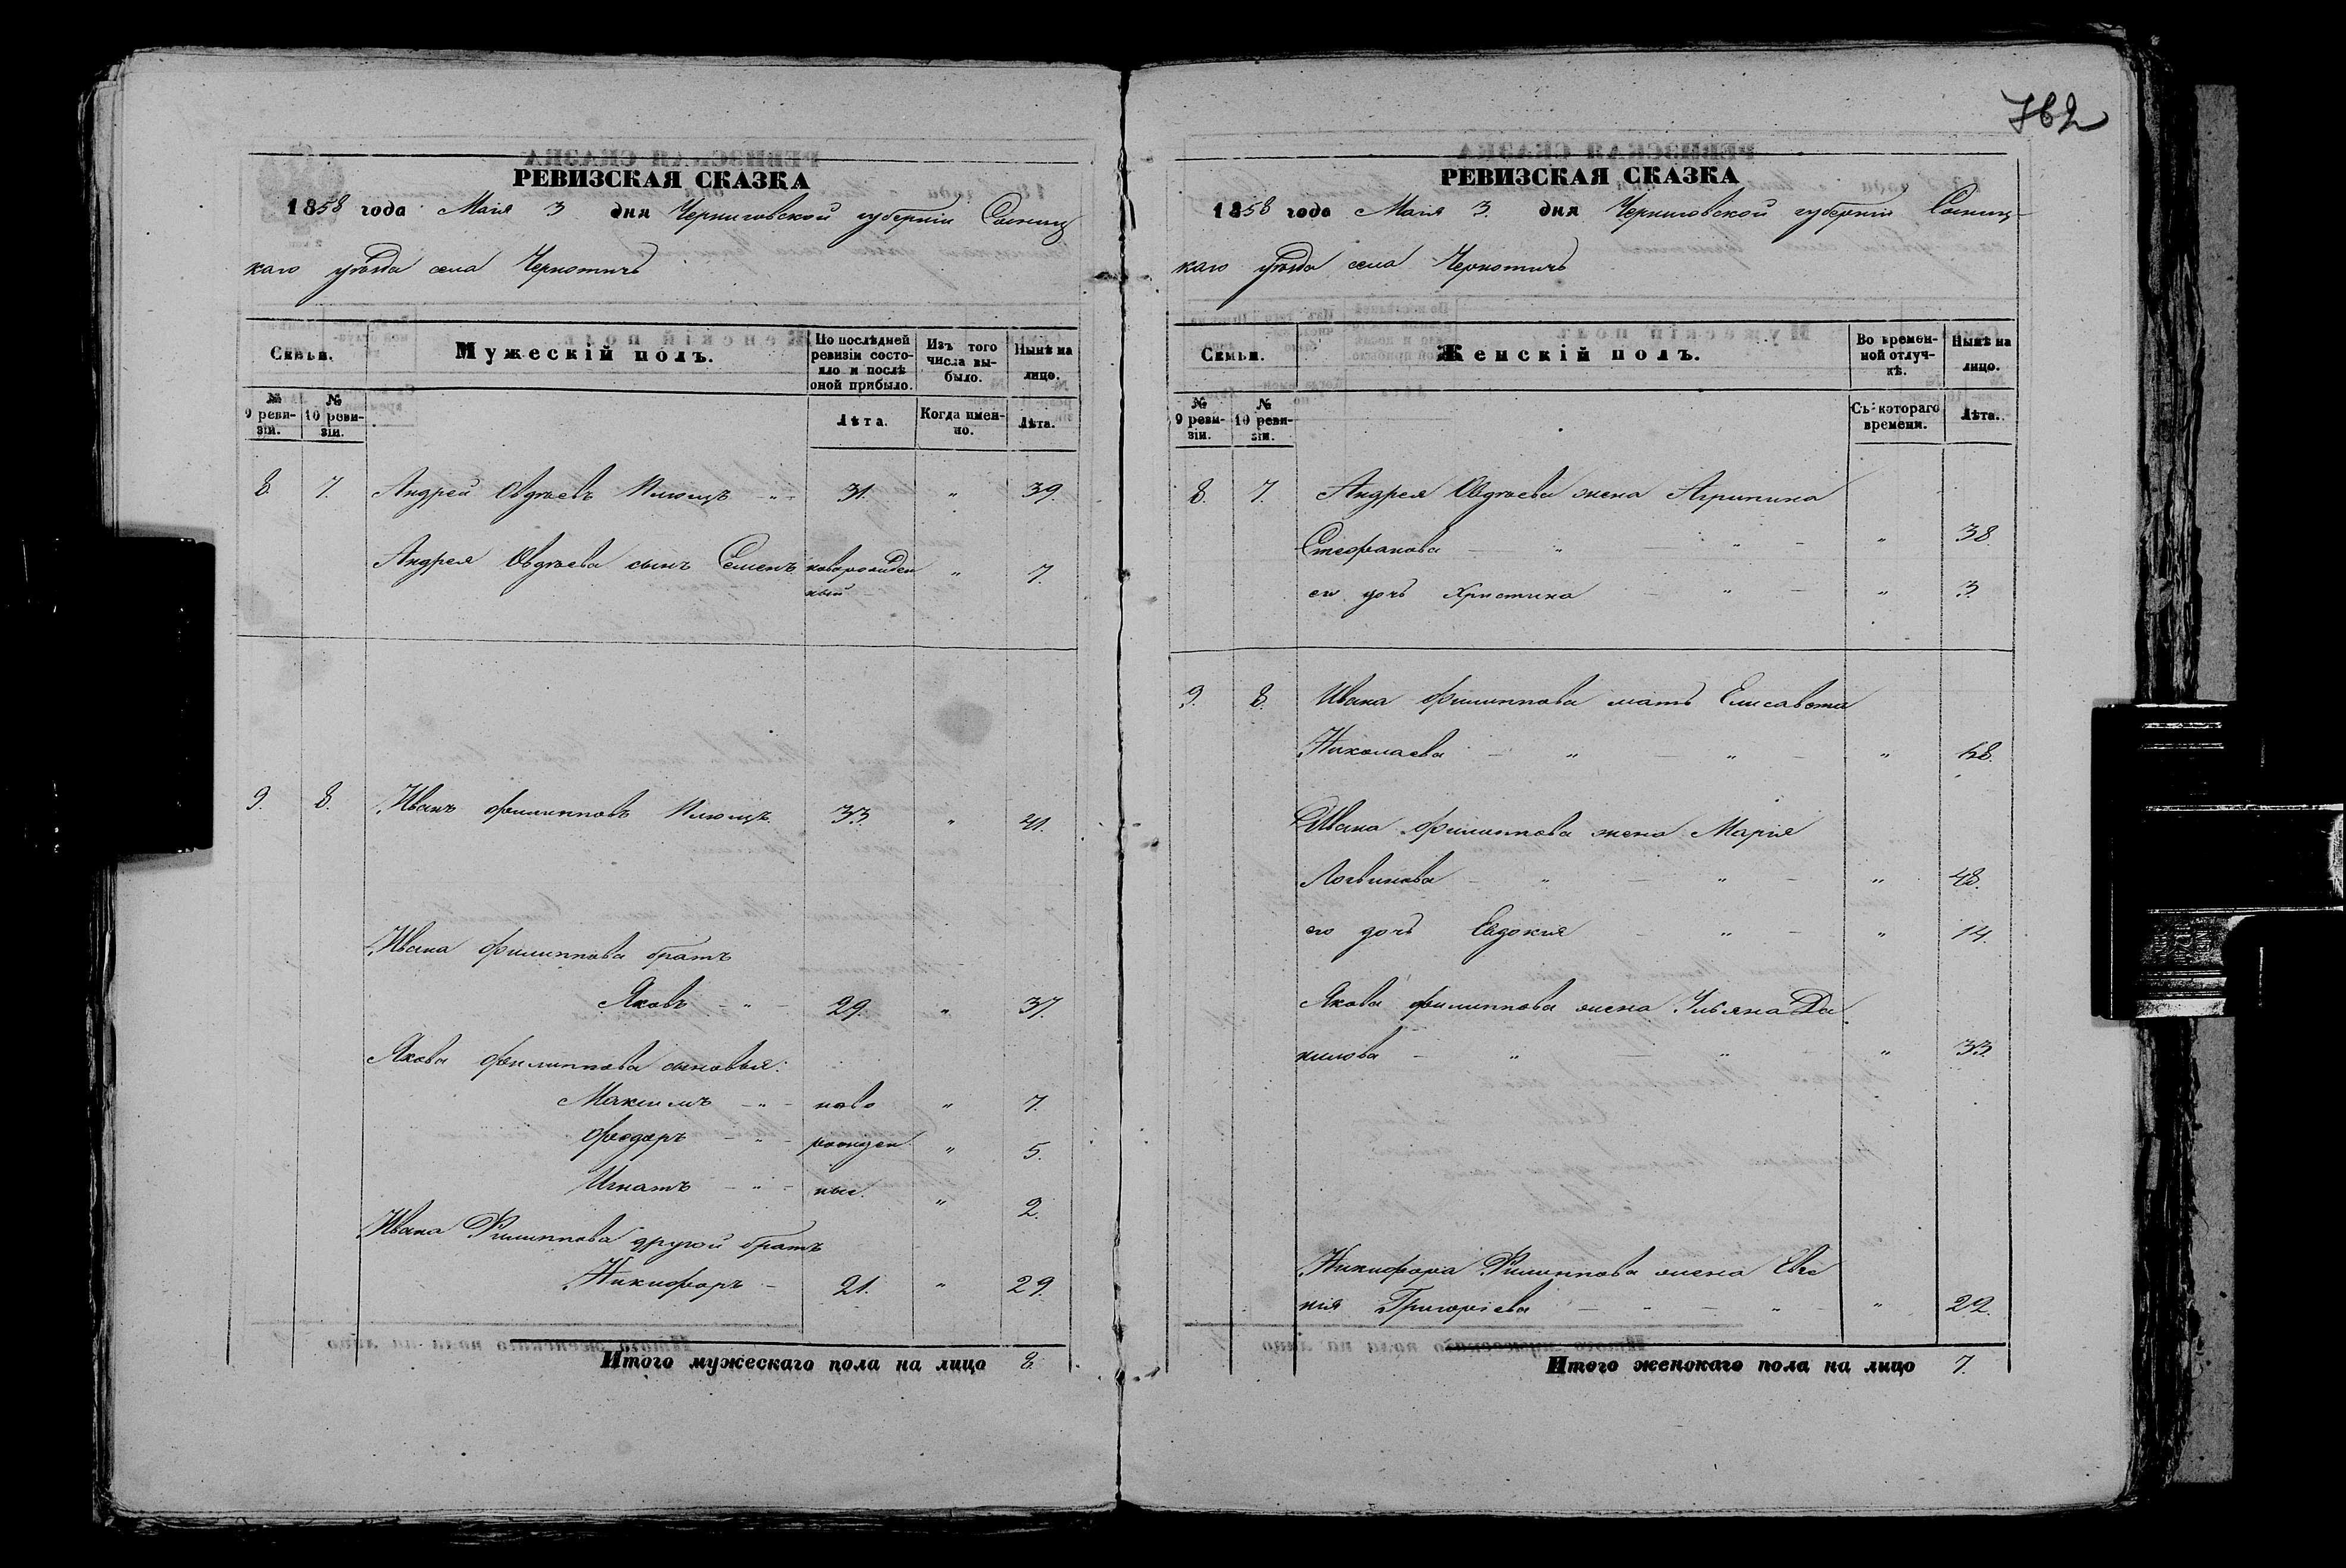 762
РЕВИЗСКАЯ СКАЗКА
1858 года Маія 3 дня Черниговской губерніи Сосниц
каго уѣзда села Чернотичъ
Семьи.
Мужескій полъ.
По послѣдней ревизіи состо-яло и послѣ оной прибыло.
Изъ того числа вы-было.
Нынѣ на лицо.
№ 9 реви-зіи.
№ 10 реви-зіи.
Лѣта.
Когда имен-но.
Лѣта.
8. 7. Андрей Овдѣевъ - " - 31. " 39.
Андрея Овдѣева сынъ Семенъ новорожден " 7.
ный
9. 8. Иванъ Филипповъ 33. " 41.
Ивана Филиппова братъ
Яковъ - " - 29. " 37.
Якова Филиппова сыновья:
Максимъ - " - ново " 7.
Феодоръ - " - рожден " 5.
Игнатъ - " - ные. " 2.
Ивана Филиппова другой братъ
Никифоръ - 21. " 29.
Итого мужескаго пола на лицо 8.
РЕВИЗСКАЯ СКАЗКА
1858 года Маія 3. дня Черниговской губерніи Сосниц-
каго уѣзда села Чернотичъ
Семьи.
Женскій полъ.
Во времен-ной отлуч-кѣ.
Нынѣ на лицо.
№ 9 реви-зіи.
№ 10 реви-зіи.
Съ котораго времени.
Лѣта.
8. 7. Андрея Овдѣева жена Агрипина
Стефанова - " - " - " 38.
его дочь Христина - " - " 3.
9. 8. Ивана Филиппова мать Елисавета
Николаева - " - " - " 68.
Ивана Филиппова жена Марія
Логвинова - " - " - " 48.
его дочь Евдокія - " - " 14.
Якова Филиппова жена Ульяна Да
нилова - " - " - " 33.
Никифора Филиппова жена Евге
нія Григоріева - " - " - " 22.
Итого женскаго пола на лицо 7.